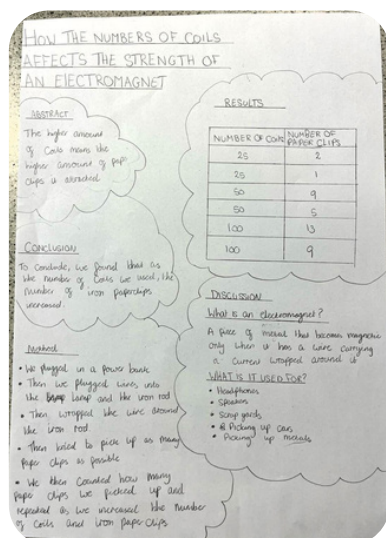 HOW THE NUMBERS OF COILS
AFFECTS THE STRENGTH OF
AN ELECTROMAGNET
ABSTRACT
The higher amount
of Coils means the
higher amount of pap
clips is attracted
CONCLUSION
To conclude, we found that as
the number of Coils we used, the
number of iron paperclips
increased.
Method
• We plugged in a power bank
• Then we plugged wires into
the lamp and the iron rod
• Then wrapped the wire around
the iron rod
• Then tried to pick up as many
paper clips as possible
• We then counted how many
paper clips we picked up and
repeated as we increased the number
of Coils and iron paper clips
RESULTS
NUMBER OF COILS NUMBER OF
PAPER CLIPS
25 2
25 1
50 9
50 5
100 13
100 9
DISCUSSION
What is an electromagnet?
A piece of metal that becomes magnetic
only when it has a wire carrying
a current wrapped around it
WHAT IS IT USED FOR?
• Headphones
• Speakers
• Scrap yards
• Picking up cars
• Picking up metals